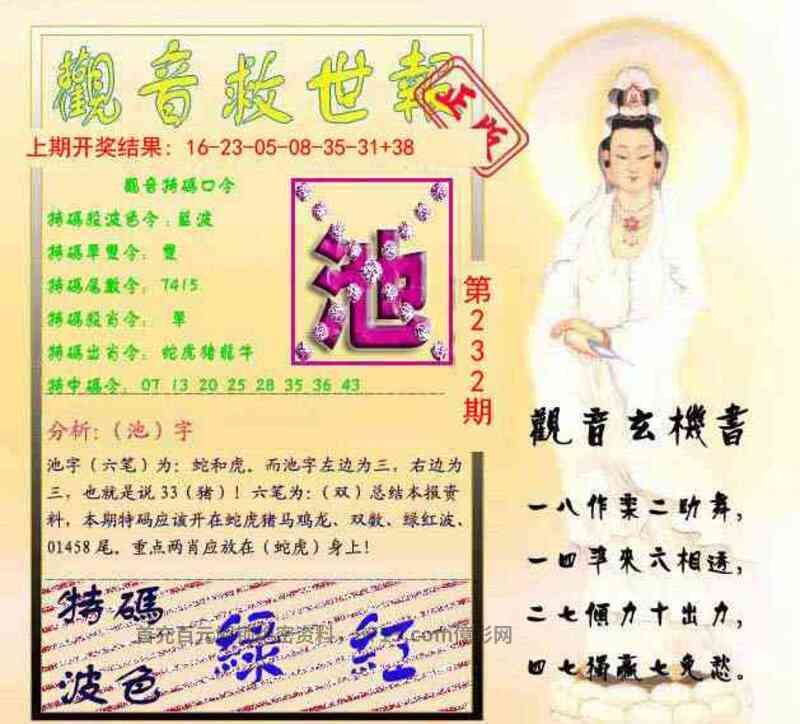 觀音救世報
正版
上期开奖结果：16-23-05-08-35-31+38
觀音特碼口令
特碼殺波色令：藍波
特碼單雙令：雙
特碼尾數令：7415
特碼殺肖令：單
特碼出肖令：蛇虎猪龍牛
特中碼令：07 13 20 25 28 35 36 43
池
第232期
分析：（池）字
池字（六笔）为：蛇和虎。而池字左边为三，右边为
三，也就是说33（猪）！六笔为：（双）总结本报资
料，本期特码应该开在蛇虎猪马鸡龙、双数、绿红波、
01458尾。重点两肖应放在（蛇虎）身上！
特碼
波色
綠 紅
觀音玄機書
一八作栗二助舞，
一四準來六相透，
二七傾力十出力，
四七獨贏七免愁。